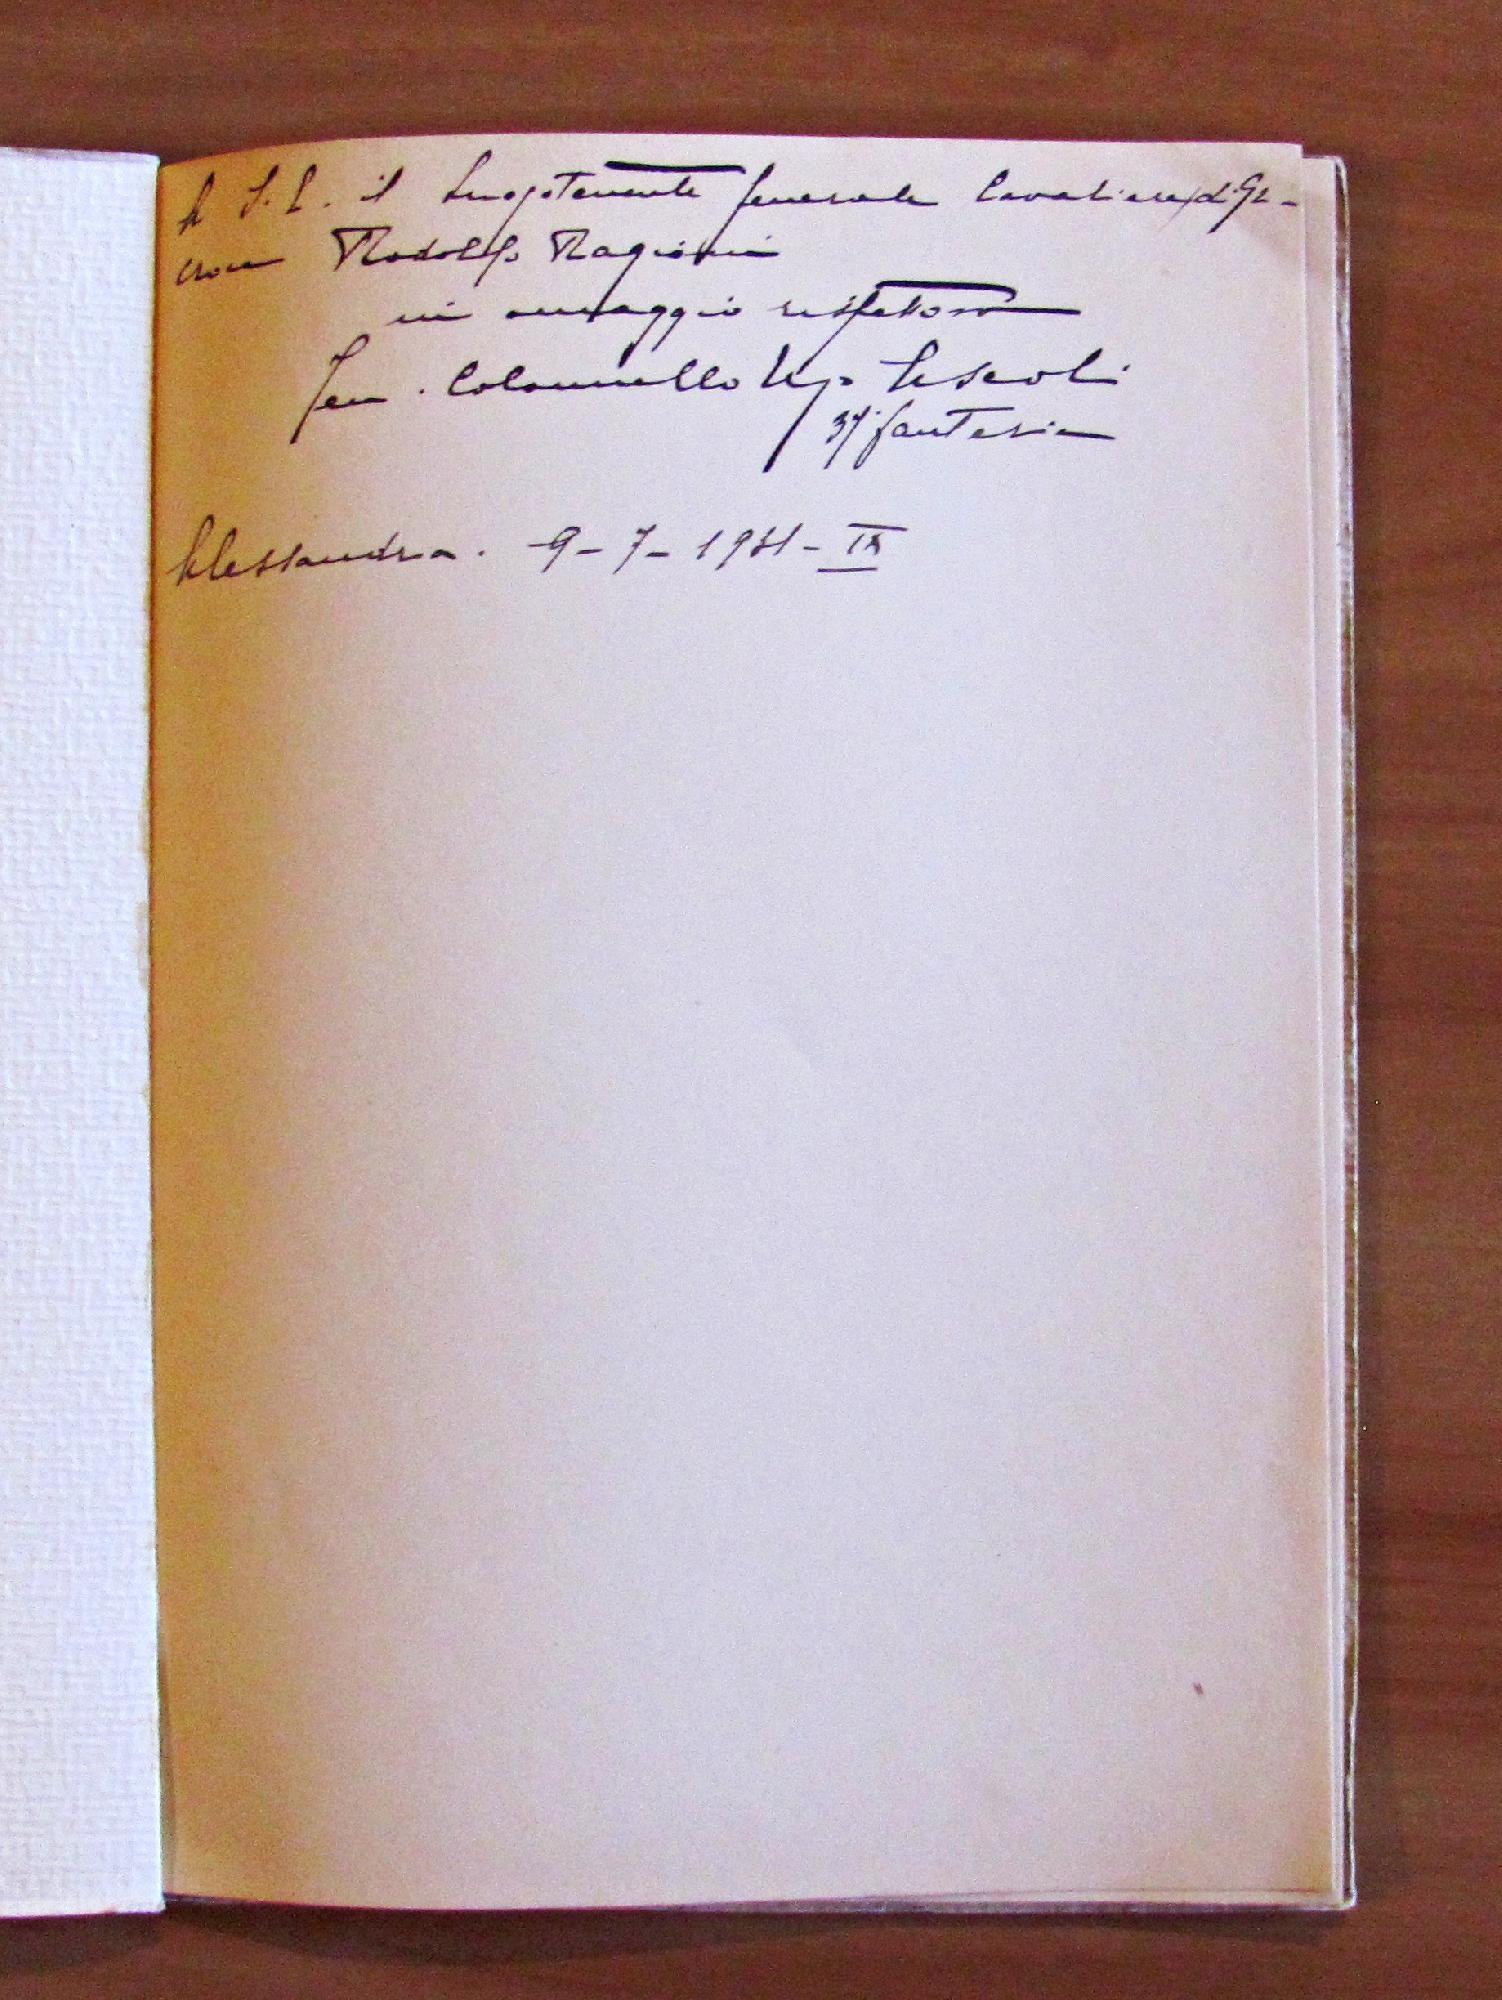 A S.E. il Luogotenente Generale Cavaliere di Gr-
croce Rodolfo Ragioni
in omaggio rispettoso
Ten. Colonnello Ugo Lescoli
37° fanteria
Alessandria. 9-7-1931-IX